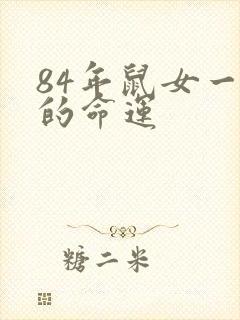 84年鼠女一
的命运
糖二米